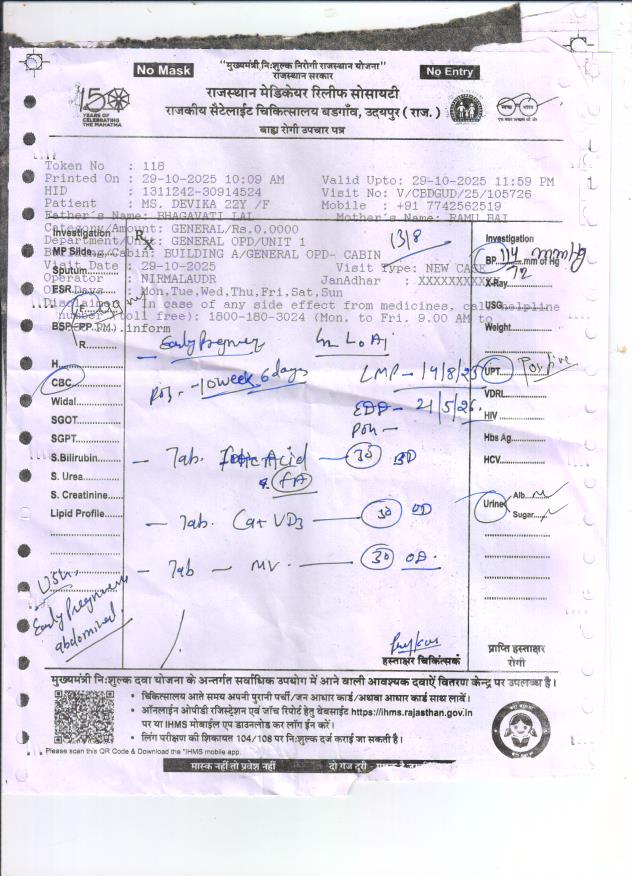 No Mask
"मुख्यमंत्री निःशुल्क निरोगी राजस्थान योजना"
राजस्थान सरकार
No Entry
राजस्थान मेडिकेयर रिलीफ सोसायटी
राजकीय सैटेलाईट चिकित्सालय बडगाँव, उदयपुर ( राज. )
बाह्य रोगी उपचार पत्र
150
YEARS OF
CELEBRATING
THE MAHATMA
Token No : 118
Printed On : 29-10-2025 10:09 AM Valid Upto: 29-10-2025 11:59 PM
HID : 1311242-30914524 Visit No: V/CBDGUD/25/105726
Patient : MS. DEVIKA 22Y /F Mobile : +91 7742562519
Father's Name: BHAGAVATI LAL Mother's Name: RAMU BAI
Category/Amount: GENERAL/Rs.0.0000
Department/Unit: GENERAL OPD/UNIT 1
BUILDING A/GENERAL OPD- CABIN
Visit Date : 29-10-2025 Visit Type: NEW CASE
Operator : NIRMALAUDR JanAdhar : XXXXXXXXX
Days : Mon,Tue,Wed,Thu,Fri,Sat,Sun
In case of any side effect from medicines, call helpline
number (toll free): 1800-180-3024 (Mon. to Fri. 9.00 AM to
PM). inform
Investigation
MP Silde
Sputum
ESR
BSF
PP
R
H
CBC
Widal
SGOT
SGPT
S.Bilirubin
S. Urea
S. Creatinine
Lipid Profile
USG
Early Pregnancy
abdominal
Rx
1318
Early Pregnancy
POG - 10 week 6 days
LMP - 14/8/25
EDD - 21/5/26.
- Tab. Folic Acid 30 BD
FA
- Tab. Ca+ VD3 30 OD
- Tab - MV. 30 OD.
हस्ताक्षर चिकित्सक
Investigation
BP 114/72 mm of Hg mm/Hg
X-Ray
USG
Weight
UPT Positive
VDRL
HIV
Hbs Ag
HCV
Urine
Alb
Sugar
प्राप्ति हस्ताक्षर
रोगी
मुख्यमंत्री निःशुल्क दवा योजना के अन्तर्गत सर्वाधिक उपयोग में आने वाली आवश्यक दवाऐं वितरण केन्द्र पर उपलब्ध है।
• चिकित्सालय आते समय अपनी पुरानी पर्ची/जन आधार कार्ड/अथवा आधार कार्ड साथ लावें।
• ऑनलाईन ओपीडी रजिस्ट्रेशन एवं जाँच रिपोर्ट हेतु वेबसाईट https://ihms.rajasthan.gov.in
पर या IHMS मोबाईल एप डाउनलोड कर लॉग ईन करें।
• लिंग परीक्षण की शिकायत 104/108 पर निःशुल्क दर्ज कराई जा सकती है।
Please scan this QR Code & Download the "IHMS mobile app.
मास्क नहीं तो प्रवेश नहीं
दो गज दूरी -